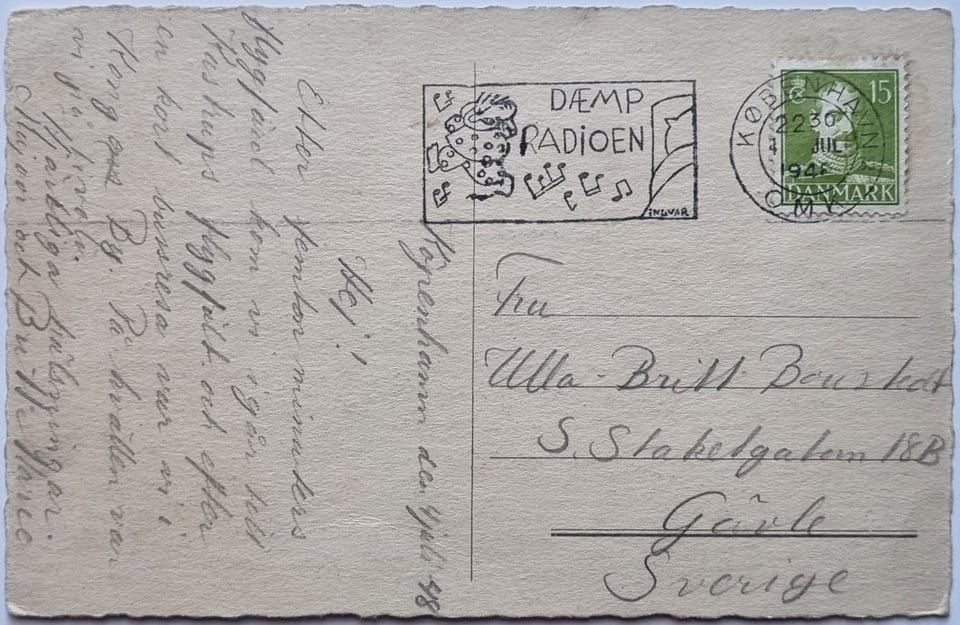 DÆMP
RADIOEN
INGVAR
KØBENHAVN
2230
JUL
OMK
15
DANMARK
Köpenhamn den 4 juli 48
Hej!
Efter femton minuters
flygfärd kom vi igår till
Kastrups flygfält och efter
en kort bussresa var vi i
Kong By. På kvällen var
vi på Tivoli.
Hjärtliga hälsningar.
Majvor och Britt-Marie
Fru
Ulla-Britt Boustedt
S. Staketgatan 18B
Gävle
Sverige